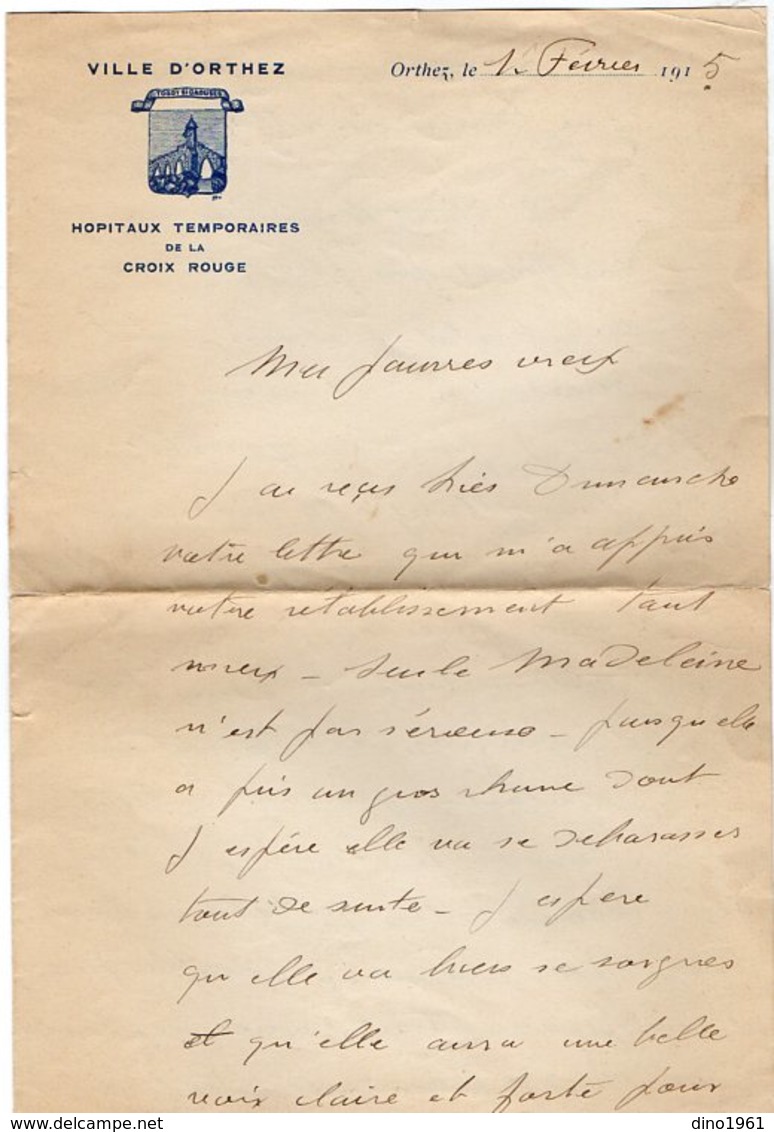 VILLE D'ORTHEZ
Orthez, le 1e Février 1915
HOPITAUX TEMPORAIRES
DE LA
CROIX ROUGE
Mes pauvres vieux
J ai reçus Dimanche
votre lettre qui m'a appris
votre rétablissement tant
mieux - Seule Madeleine
n'est pas sérieuse - puisqu elle
a pris un gros rhume dont
J espére elle va se debarasser
tout de suite - J espere
qu elle va bien se soigner
et qu'elle aura une belle
voix claire et forte pour
dino1961